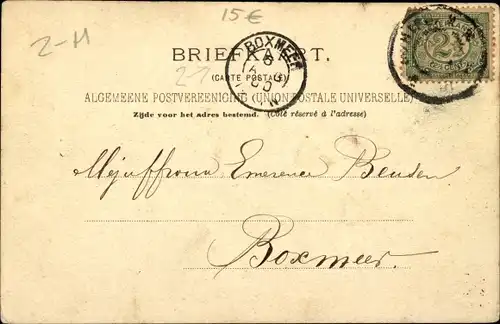 15€
2-M
BRIEFKAART.
BOXMEER
(CARTE POSTALE)
ALGEMEENE POSTVEREENIGING (UNION POSTALE UNIVERSELLE)
Zijde voor het adres bestemd. (Côté réservé à l'adresse)
2½
Mejuffrouw Emerence Beusen
Boxmeer.